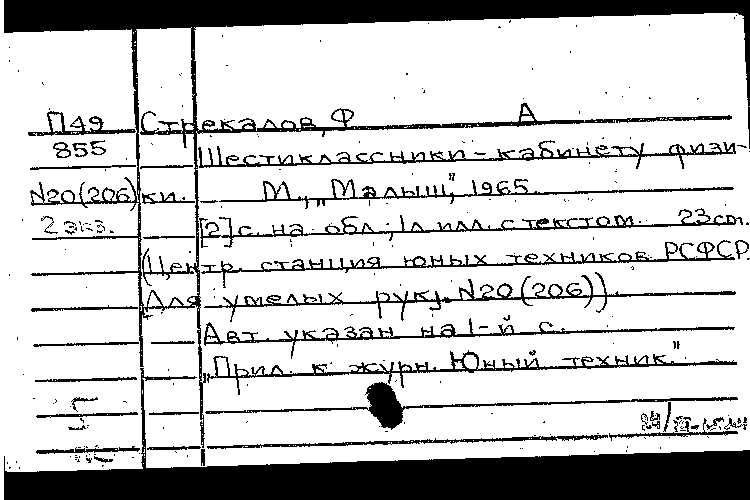 П49 Стрекалов, Ф А
855 Шестиклассники - кабинету физи-
N20(206) ки. М., „Малыш", 1965.
2 экз. [2] с. на обл.; 1л илл. с текстом. 23 см.
(Центр. станция юных техников РСФСР.
Для умелых рук). N20(206)).
Авт. указан на 1-й с.
„Прил. к журн. Юный техник."